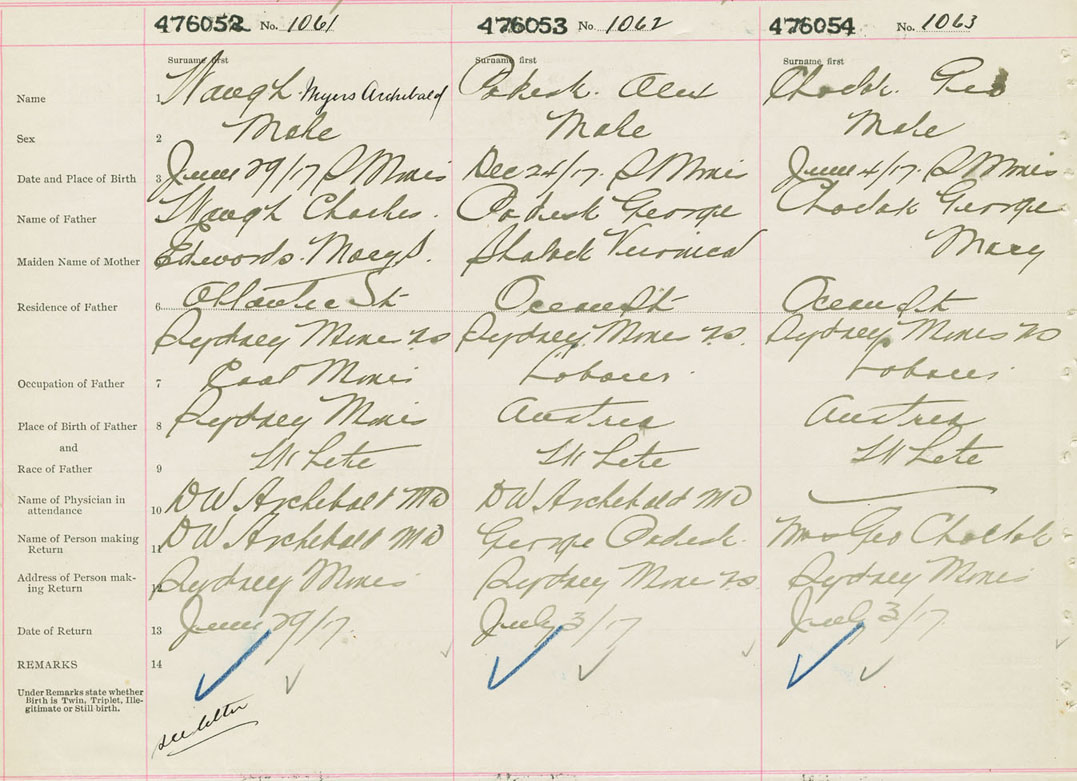 476052 No. 1061 476053 No. 1062 476054 No. 1063
Surname first Surname first Surname first
Name 1 Waugh Myers Archibald Alex Chodak Geo
Sex 2 Male Male Male
Date and Place of Birth 3 June 29/17 S Mines Dec 24/17. S Mines June 4/17. S Mines
Name of Father Waugh Charles. George Chodak George
Maiden Name of Mother Edwards Mary S. Veronica Mary
Residence of Father 6 Atlantic St Ocean St Ocean St
Sydney Mines NS Sydney Mines NS. Sydney Mines NS
Occupation of Father 7 Coal Miner Laborer Laborer
Place of Birth of Father 8 Sydney Mines Austria Austria
and
Race of Father 9 White White White
Name of Physician in
attendance 10 DW Archibald MD DW Archibald MD
Name of Person making
Return 11 DW Archibald MD George Mrs Geo
Address of Person mak-
ing Return 12 Sydney Mines Sydney Mines NS. Sydney Mines
Date of Return 13 June 29/17 July 3/17 July 3/17
REMARKS 14
Under Remarks state whether
Birth is Twin, Triplet, Ille-
gitimate or Still birth.
see letter